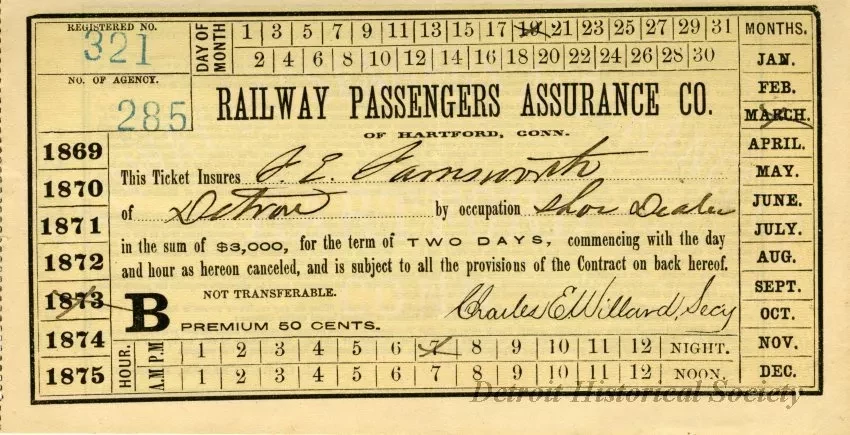 REGISTERED NO.
321
NO. OF AGENCY.
285
DAY OF MONTH
1 3 5 7 9 11 13 15 17 19 21 23 25 27 29 31
2 4 6 8 10 12 14 16 18 20 22 24 26 28 30
MONTHS.
JAN.
FEB.
MARCH.
APRIL.
MAY.
JUNE.
JULY.
AUG.
SEPT.
OCT.
NOV.
DEC.
RAILWAY PASSENGERS ASSURANCE CO.
OF HARTFORD, CONN.
1869
1870
1871
1872
1873
1874
1875
This Ticket Insures J. E. Farnsworth
of Detroit by occupation Shoe Dealer
in the sum of $3,000, for the term of TWO DAYS, commencing with the day
and hour as hereon canceled, and is subject to all the provisions of the Contract on back hereof.
NOT TRANSFERABLE.
B
PREMIUM 50 CENTS.
Charles E Willard, Secy
HOUR.
P.M 1 2 3 4 5 6 7 8 9 10 11 12 NIGHT.
A.M 1 2 3 4 5 6 7 8 9 10 11 12 NOON.
Detroit Historical Society